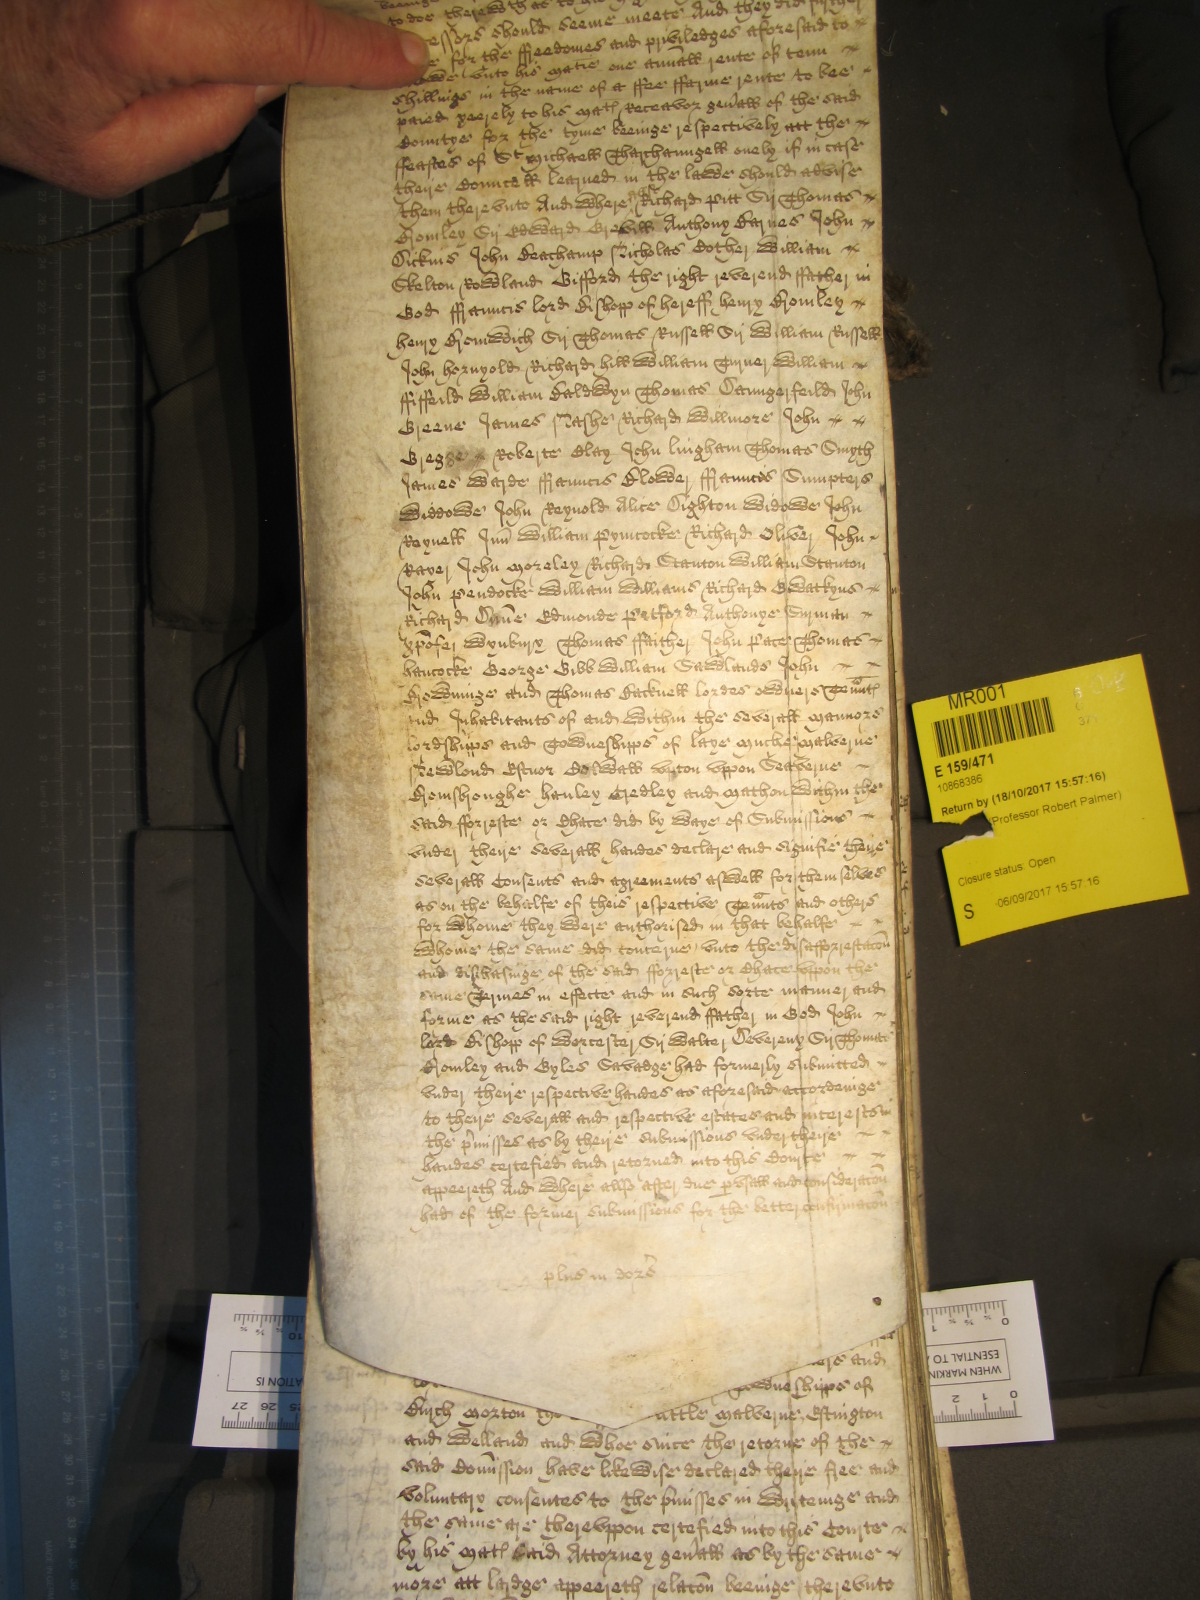 to doe therewith as to his
essors should seeme meete And they did further
for the ffreedomes and priviledges aforesaid to
unto his matie one annuall rente of tenn
shillings in the name of a ffee ffarme rente to bee
paied yeerely to his mats Receavor genall of the said
Countye for the tyme beeinge respectively att the
ffeastes of St Michaell Tharchaungell onely if in case
theire Councell learned in the lawe should advise
them thereunto And where Richard Pitt Sir Thomas
Bromley Sir Edward Grevill Anthony Barnes John
Dickins John Beachamp Nicholas Cother William
Skelton Rowland Gifford the right reverend ffather in
God ffrauncis lord Bishopp of hereff henry Bromley
henry Bromwich Sir Thomas Russell Sir William Russell
John hornyold Richard hill William Turner William
ffiffeild William Baldwyn Thomas Daungerfeild John
Greene James Nashe Richard Willmore John
Gregge Roberte Clay John Lingham Thomas Smyth
James Warde ffrauncis Clower ffrauncis Sumpters
Widdowe John Reynold Alice Dighton Widowe John
Reynell Junr William Pymcocke Richard Oliver John
Raver John Moreley Richard Stanton William Stanton
John Pendocke William Williams Richard Gwatkyns
Richard Edmonde Pitford Anthonye Surman
xpofer Wynbury Thomas ffaither John Pace Thomas
hancocke George Gibb William Sawlands John
Browninge and Thomas Backnell lordes owners Tennts
and Inhabitants of and within the severall mannors
lordshipps and Towneshipps of Laye Muche Malverne
Newlond Estnor Colwall upton uppon Seaverne
Bromsbroughe hanley Credley and Mathon within the
said fforreste or Chace did by waye of Submissions
under theire severall handes declare and signifie theire
severall Consents and agreements aswell for themselves
as on the behalfe of theis respective Tennts and others
for whome they were authorised in that behalfe
whome the same did concerne unto the disafforrestacon
and dischasinge of the said fforreste or Chace uppon the
same Termes in effecte and in such sorte manner and
forme as the said right reverend ffather in God John
lord Bishopp of Worcester Sir Walter Devereux Sir Thomas
Bromley and Gyles Savadge had formerly submitted
under theire respective handes as aforesaid accordeinge
to theire severall and respective estates and interests in
the pmisses as by theire submissions under theire
handes certefied and retorned into this Courte
appeereth And where allso after due pusall and consideracon
had of the former submissions for the better confirmacon
plus in dors
and
Towneshipps of
Birch Morton little Malverne Estington
and Welland and whoe since the retorne of the
said Comission have likewise declared theire free and
voluntary consentes to the pmisses in writeinge and
the same are thereuppon certefied into this Courte
by his mats said Attorney genall as by the same
more att lardge appeereth relacon beeinge thereunto
MR001
E 159/471
10868386
Return by (18/10/2017 15:57:16)
Professor Robert Palmer)
Closure status: Open
S
06/09/2017 15:57:16
WHEN MARKIN
ESSENTIAL TO A
ATION IS
0 1 2
25 26 27